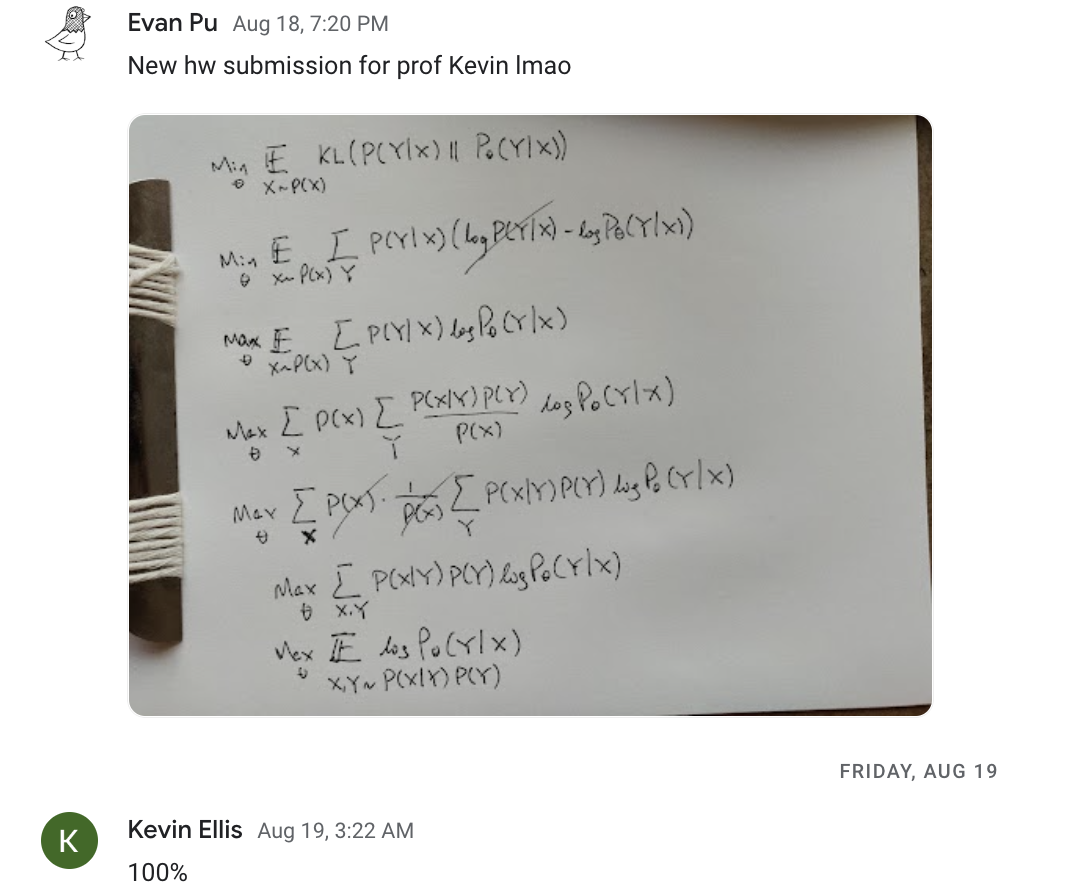 Evan Pu Aug 18, 7:20 PM
New hw submission for prof Kevin lmao
Min_θ 𝔼_{X~P(X)} KL(P(Y|X) || P_θ(Y|X))
Min_θ 𝔼_{X~P(X)} Σ_Y P(Y|X) (log P(Y|X) - log P_θ(Y|X))
Max_θ 𝔼_{X~P(X)} Σ_Y P(Y|X) log P_θ(Y|X)
Max_θ Σ_X P(X) Σ_Y P(X|Y) P(Y) / P(X) log P_θ(Y|X)
Max_θ Σ_X P(X) · 1/P(X) Σ_Y P(X|Y) P(Y) log P_θ(Y|X)
Max_θ Σ_{X,Y} P(X|Y) P(Y) log P_θ(Y|X)
Max_θ 𝔼_{X,Y~P(X|Y) P(Y)} log P_θ(Y|X)
FRIDAY, AUG 19
K
Kevin Ellis Aug 19, 3:22 AM
100%